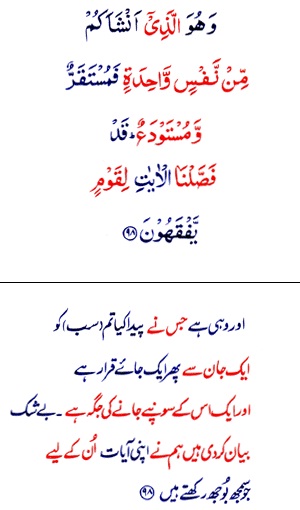 وَهُوَ الَّذِیْۤ اَنْشَاَكُمْ
مِّنْ نَّفْسٍ وَّاحِدَةٍ فَمُسْتَقَرٌّ
وَّمُسْتَوْدَعٌ ؕ قَدْ
فَصَّلْنَا الْاٰیٰتِ لِقَوْمٍ
یَّفْقَهُوْنَ ﴿۹۸﴾
اور وہی ہے جس نے پیدا کیا تم (سب) کو
ایک جان سے پھر ایک جائے قرار ہے
اور ایک اس کے سونپے جانے کی جگہ ہے ۔ بے شک
بیان کر دی ہیں ہم نے اپنی آیات اُن کے لیے
جو سمجھ بُوجھ رکھتے ہیں ﴿۹۸﴾